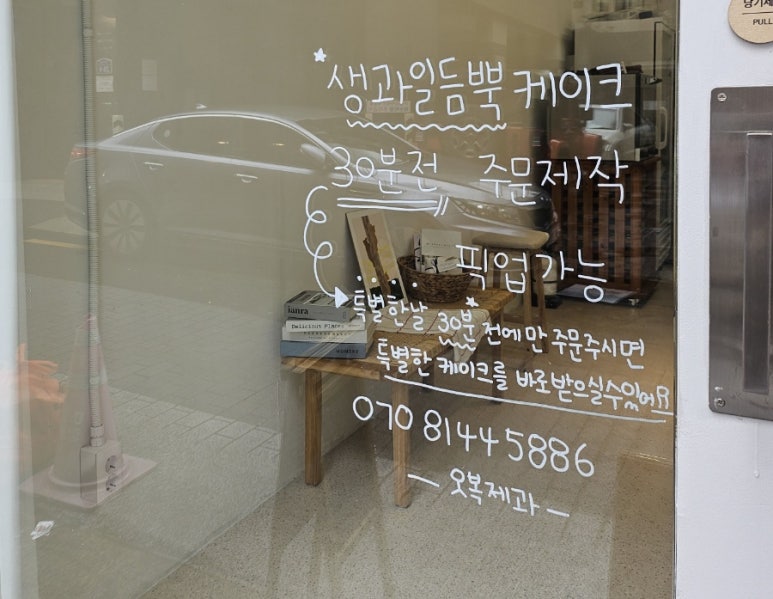 당기세
PULL
생과일듬뿍 케이크
30분전 주문제작
픽업가능
특별한날 30분 전에만 주문주시면
특별한 케이크를 바로받으실수있어요
070 8144 5886
— 오복제과 —
Delicious Places